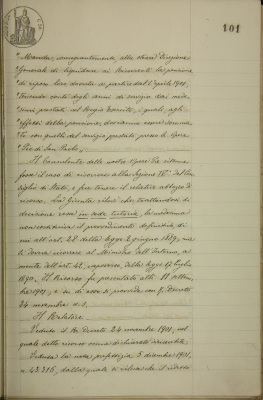 101
Manda, conseguentemente, alla stessa Direzione
Generale di liquidare ai ricorrenti la pensione
di riposo loro dovuta a partire dal 1° Aprile 1901,
tenendo conto degli anni di servizio da mede-
simi prestati nel Regio Esercito, i quali, agli
effetti della pensione, dovranno essere cumula-
ti con quelli del servizio prestato presso le Opere
Pie di San Paolo.
Il Consulente della nostra Opera Pia
fosse il caso di ricorrere alla Sezione IV del Con-
siglio di Stato, e fece tenere il relativo abbozzo di
ricorso. La Giunta che, trattandosi di
decisione resa in sede tutoria, la medesima
non costituiva il provvedimento definitivo, di
cui all'art. 28 della legge 2 giugno 1889, ma
si doveva ricorrere al Ministero dell'Interno, a
mente dell'art. 42, della legge 17 luglio
1890. Il Ricorso fu presentato alli 11 otto-
bre 1901, e su di esso si provvide con R. Decreto
24 novembre d.o
Il Relatore
Veduto il R. Decreto 24 novembre 1901, col
quale detto ricorso venne dichiarato irricevibile.
Veduta la nota prefettizia 5 dicembre 1901,
n. 43315, dalla quale si rileva che il ricorso